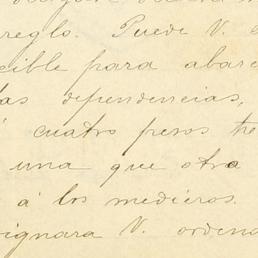 reglo. Puede V. e
cible para abarc
las dependencias,
cuatro pesos tre
una que otra
á los medieros.
ignara V. ordena